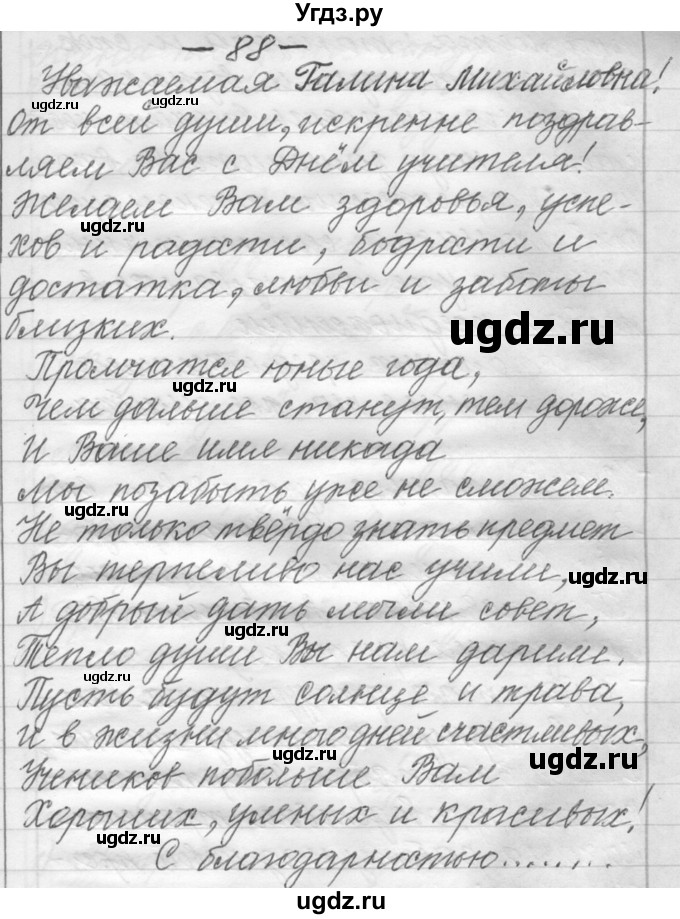 Угдз.ру
– 88 –
Уважаемая Галина Михайловна!
ugdz.ru
От всей души, искренне поздрав-
ugdz.ru
ляем Вас с Днём учителя!
Желаем Вам здоровья, успе-
ugdz.ru
хов и радости, бодрости и
достатка, любви и заботы
близких.
ugdz.ru
Промчатся юные года,
ugdz.ru
Чем дальше станут, тем дороже,
И Ваше имя никогда
ugdz.ru
Мы позабыть уже не сможем.
ugdz.ru
Не только твёрдо знать предмет
Вы терпеливо нас учили,
ugdz.ru
А добрый дать могли совет,
ugdz.ru
Тепло души Вы нам дарили.
ugdz.ru
Пусть будут солнце и трава,
И в жизни много дней счастливых,
ugdz.ru
ugdz.ru
Учеников побольше Вам
Хороших, умных и красивых!
ugdz.ru
С благодарностью.........
ugdz.ru
ugdz.ru